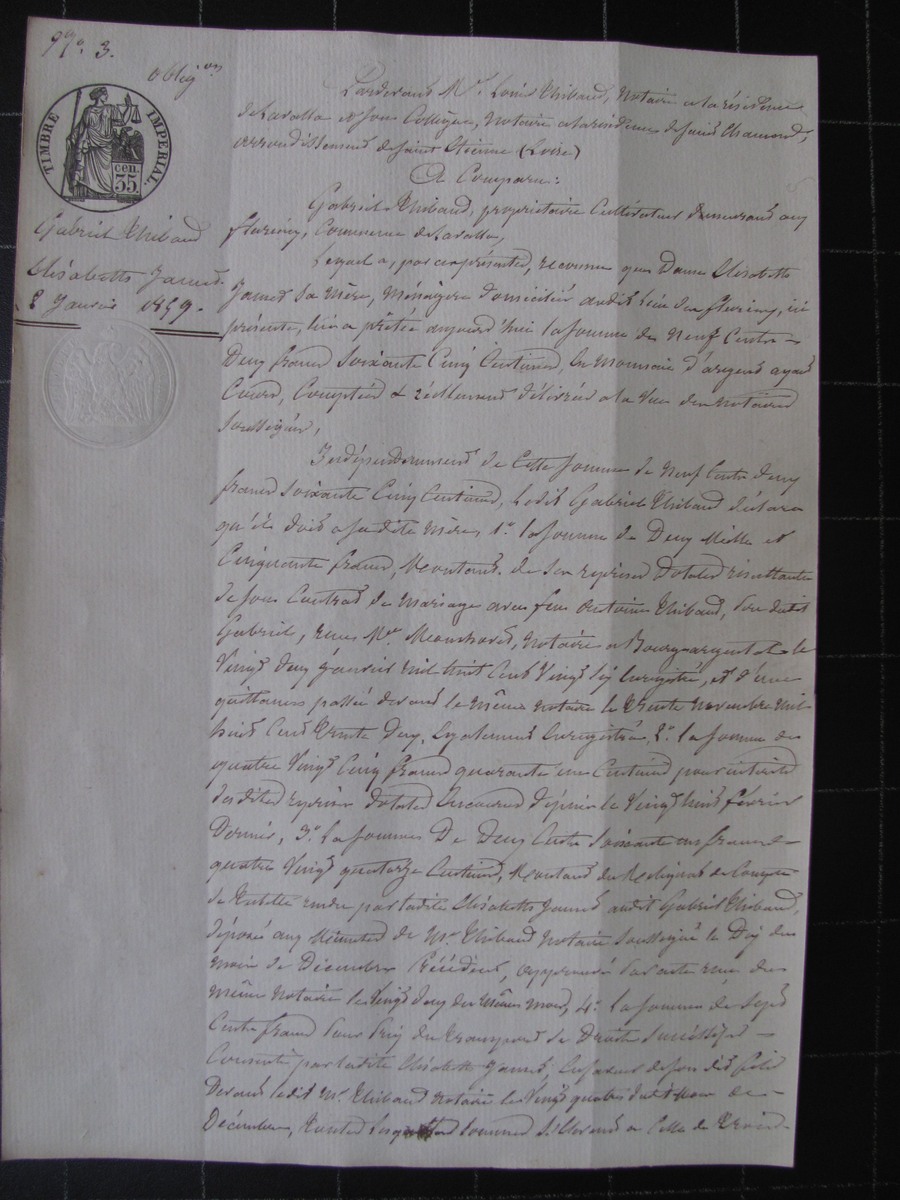 Nº. 3.
Oblig.on
TIMBRE IMPERIAL.
35 cen.
Gabriel Thibaud
Elisabeth Jamet
8 Janvier 1859.
Pardevant Me. Louis Thibaud, Notaire à la résidence
de Lavalla et son Collègue, Notaire à la résidence de Saint Chamond,
arrondissement de Saint Etienne (Loire)
A Comparu:
Gabriel Thibaud, propriétaire Cultivateur demeurant au
Commune de Lavalla,
Lequel a, par ces présentes, reconnu que Dame Elisabeth
Jamet sa Mère, Ménagère domiciliée audit lieu de ici
présente, lui a prêtée aujourd'hui la somme de Neuf Cents
Deux francs Soixante Cinq Centimes, en Monnaie d'argent ayant
Cours, Comptée & réellement délivrée à la Vue des Notaires
Soussignés,
Indépendamment de Cette Somme de Neuf Cents deux
francs Soixante Cinq Centimes, Ledit Gabriel Thibaud déclare
qu'il doit à sadite Mère, 1º. la Somme de Deux Mille et
Cinquante francs, Montant de ses reprises dotales résultante
de son Contrat de Mariage avec feu Antoine Thibaud, père dudit
Gabriel, reçu Me. Notaire à Bourg-argental le
Vingt deux Janvier mil huit Cent Vingt six Enregistré, et d'une
quittance passée devant le même Notaire le Trente Novembre Mil
huit Cent Trente Deux, également Enregistrée, 2º. la Somme de
quatre Vingt Cinq francs quarante un Centimes pour intérêts
desdites reprises dotales encourus depuis le Vingt huit février
Dernier, 3º. la Somme De Deux Cents Soixante un francs
quatre Vingt quatorze Centimes, Montant du Reliquat de Compte
de Tutelle rendu par ladite Elisabeth Jamet audit Gabriel Thibaud,
déposé aux Minutes de Me. Thibaud Notaire Soussigné le Dix du
mois de Décembre Précédent, approuvé par acte reçu du
même Notaire le Vingt deux du Même Mois, 4º. la somme de Sept
Cents francs pour Prix du Transport de Droits Successifs
Consenti par ladite Elisabeth Jamet en faveur de son dit fils
Devant ledit Me. Thibaud Notaire le Vingt quatre dudit Mois de
Décembre, Toutes Lesquelles Sommes S'élevant à Celle de Trois